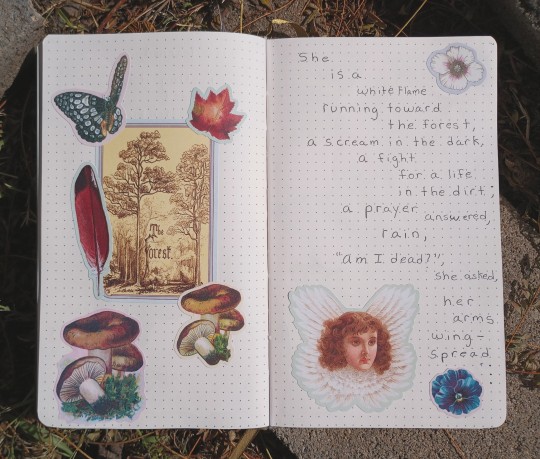 The
Forest.
She
is a
white flame
running toward
the forest,
a scream in the dark,
a fight
for a life
in the dirt;
a prayer answered,
rain,
"am I dead?",
she asked,
her
arms
wing-
spread...